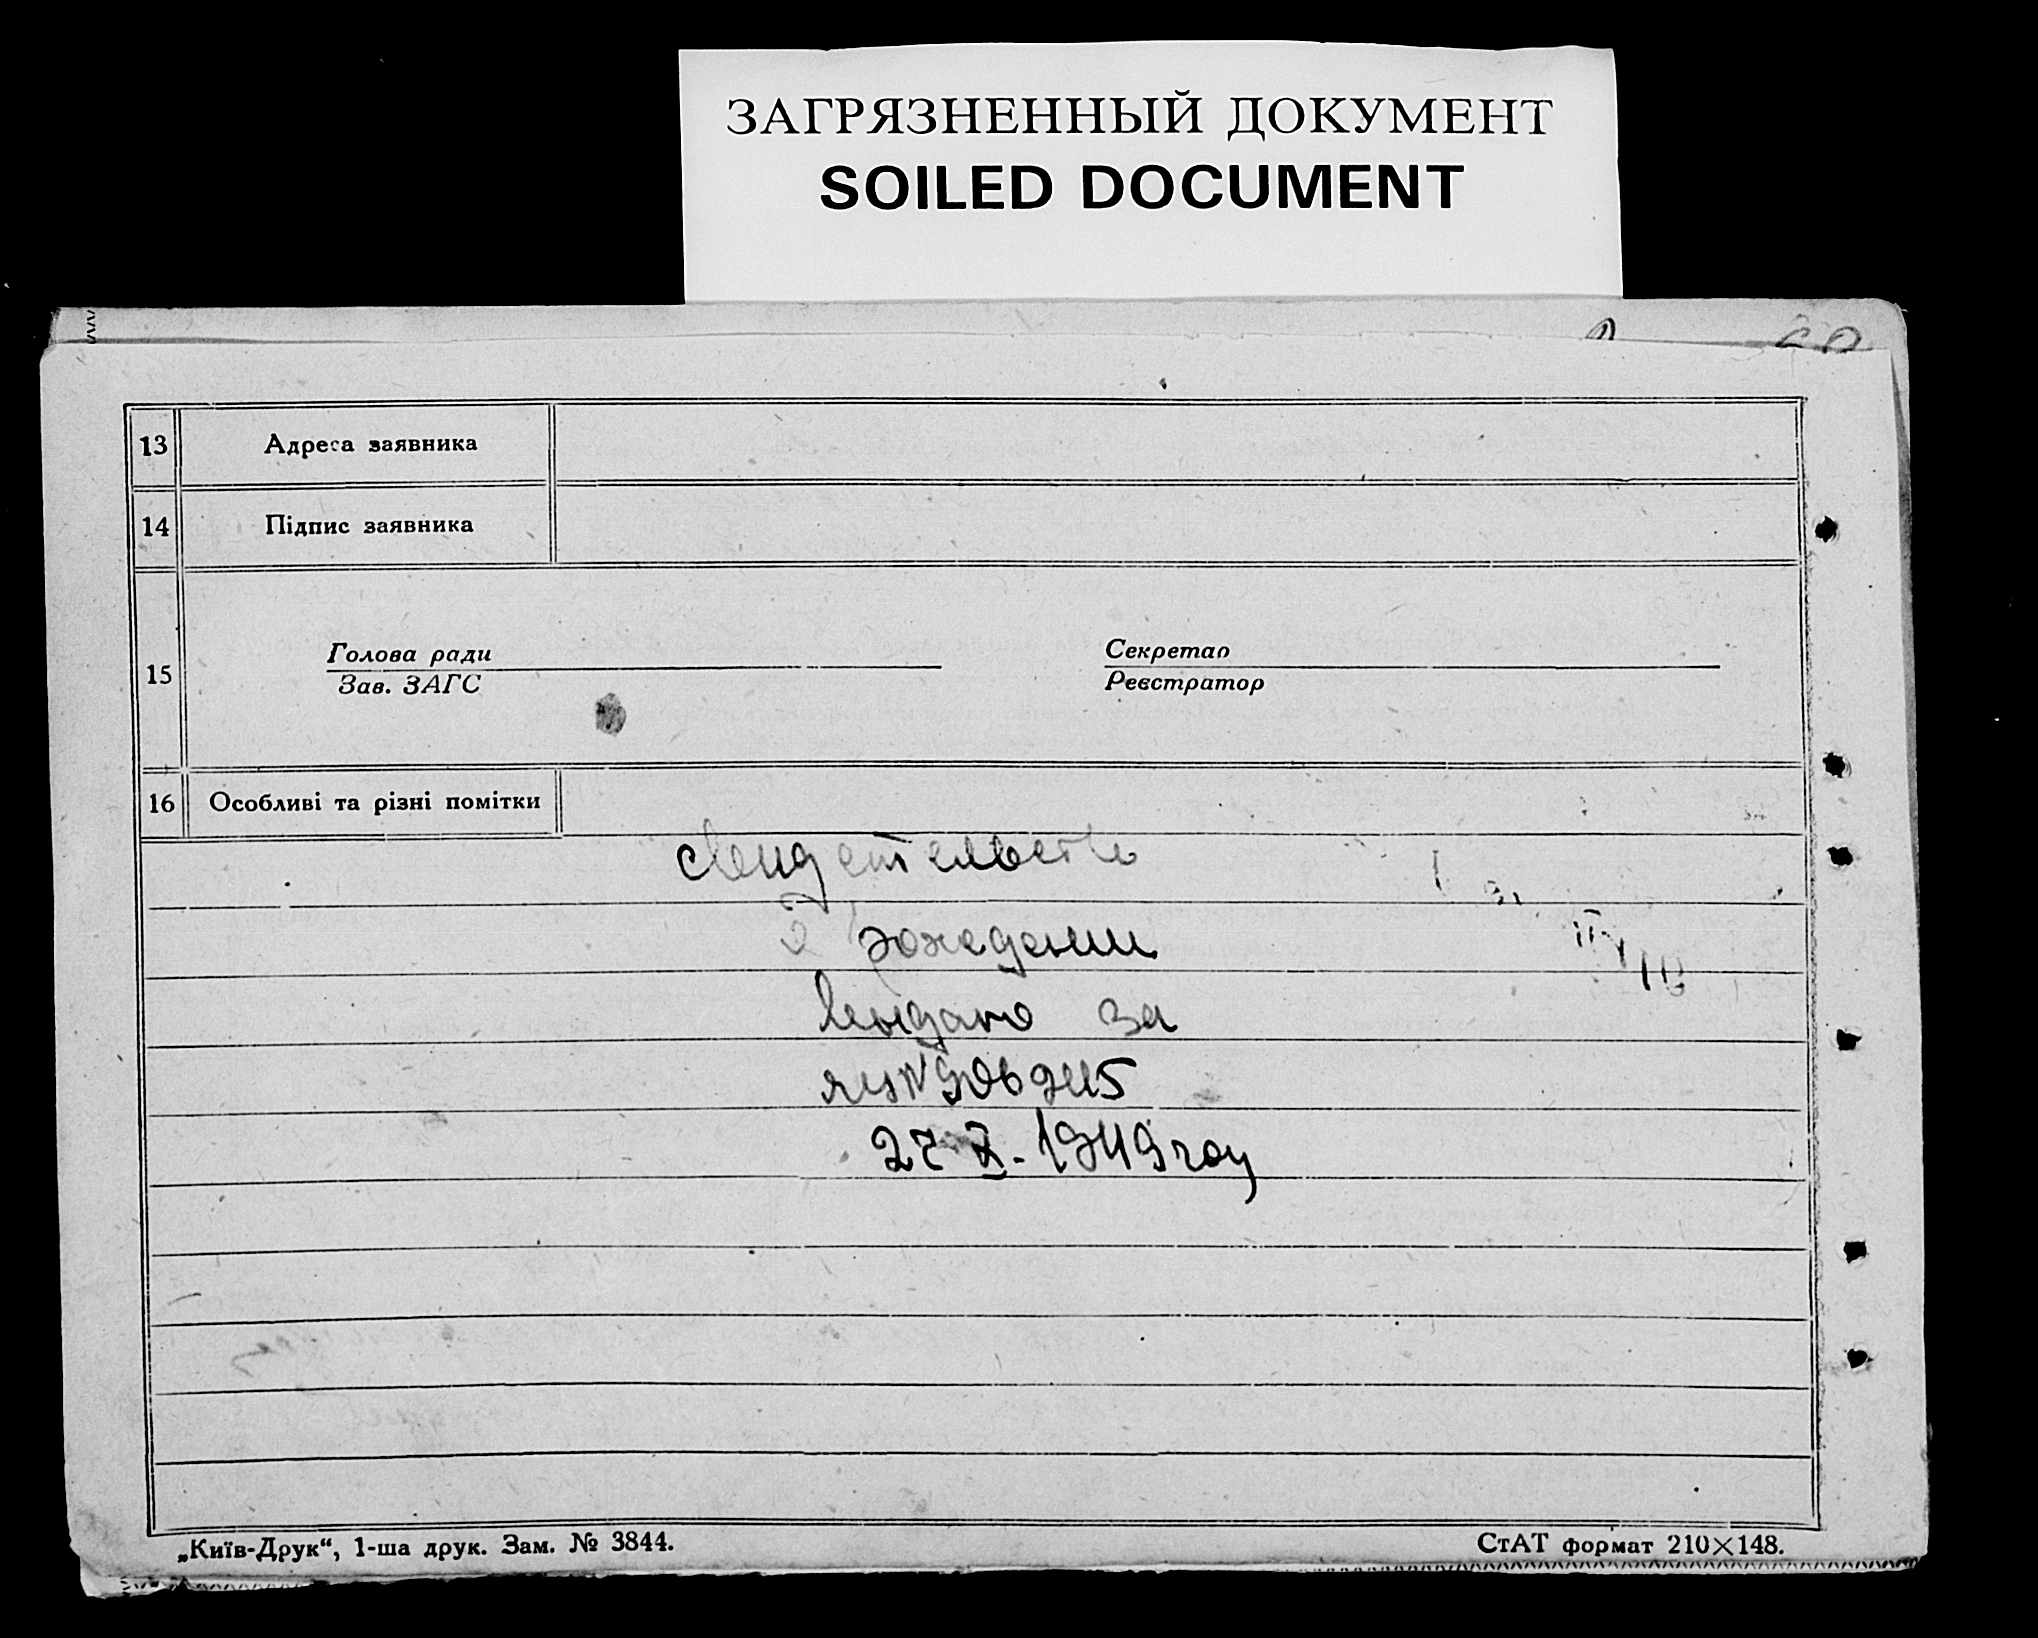 ЗАГРЯЗНЕННЫЙ ДОКУМЕНТ
SOILED DOCUMENT
13 Адреса заявника
14 Підпис заявника
15 Голова ради Секретар
Зав. ЗАГС Реєстратор
16 Особливі та різні помітки
свидетельство
о рождении
выдано за
27 X. 1949 году
„Київ-Друк“, 1-ша друк. Зам. № 3844. СтАТ формат 210×148.